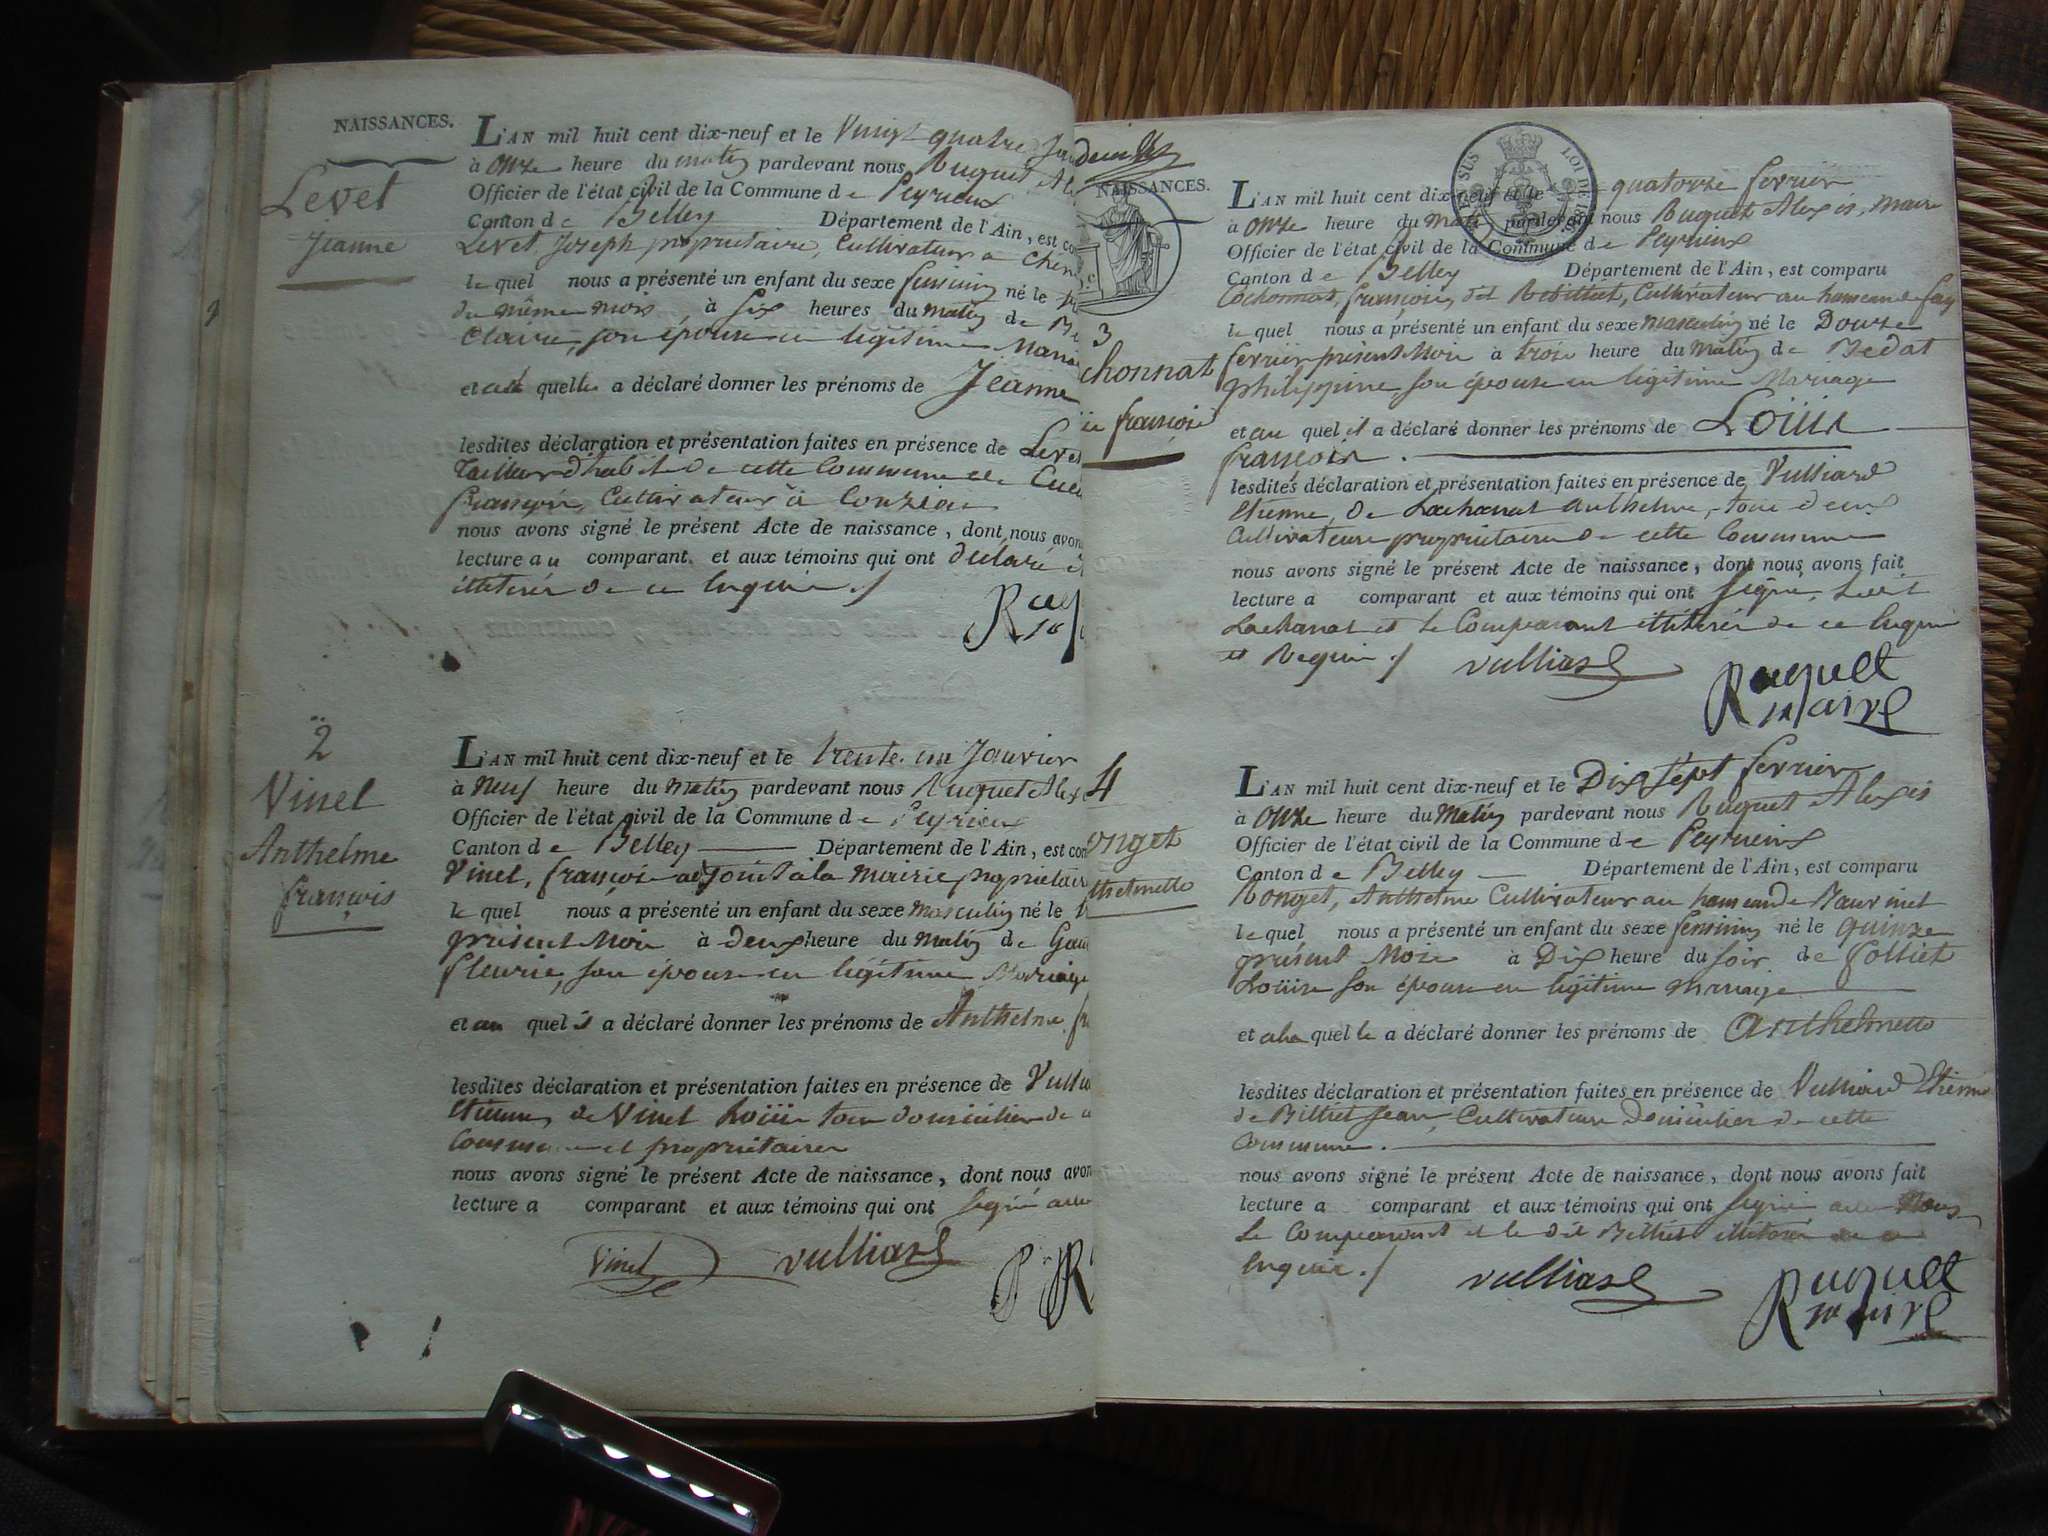 NAISSANCES.
Levet
Jeanne
L'AN mil huit cent dix-neuf et le Vingt quatre
à onze heure du matin pardevant nous Ruguet
Officier de l'état civil de la Commune de Peyrieux
Canton de Belley Département de l'Ain, est
Levet Joseph propriétaire, Cultivateur à
le quel nous a présenté un enfant du sexe feminin né le
du même mois, à six heures du matin de
Claire, son épouse en légitime
et a la quelle a déclaré donner les prénoms de Jeanne
lesdites déclaration et présentation faites en présence de
tailleur d'habit de cette Commune
françois, Cultivateur à
nous avons signé le présent Acte de naissance, dont nous
lecture au comparant et aux témoins qui ont déclaré
illiterés de ce Enquis ./
2
Vinel
Anthelme
françois
L'AN mil huit cent dix-neuf et le trente un Janvier
à neuf heure du matin pardevant nous Ruguet
Officier de l'état civil de la Commune de Peyrieux
Canton de Belley Département de l'Ain, est
Vinel, françois adjoint à la mairie
le quel nous a présenté un enfant du sexe masculin né le
présent Mois à deux heure du matin de
fleurie, son épouse en légitime Mariage
et au quel il a déclaré donner les prénoms de Anthelme
lesdites déclaration et présentation faites en présence de
Etienne, de Vinel Loüis tous domiciliés de
et propriétaires
nous avons signé le présent Acte de naissance, dont nous
lecture a comparant et aux témoins qui ont signé
Vinel vulliard
NAISSANCES.
LOI DE
3
chonnat
françois
L'AN mil huit cent dix-neuf et le quatorze fevrier
à onze heure du matin pardevant nous Ruguet Alexis, maire
Officier de l'état civil de la Commune de Peyrieux
Canton de Belley Département de l'Ain, est comparu
Cochonnat, françois, dit Cultivateur au hameau de
le quel nous a présenté un enfant du sexe masculin né le Douze
fevrier présent Mois à trois heure du matin de Bedat
philippine, son épouse en légitime Mariage
et au quel il a déclaré donner les prénoms de Loüis
françois.
lesdites déclaration et présentation faites en présence de Vulliard
Etienne, de Lachanat Anthelme, tous deux
Cultivateurs propriétaires de cette Commune
nous avons signé le présent Acte de naissance, dont nous avons fait
lecture a comparant et aux témoins qui ont signé,
Lachanat et le Comparant illiterés de ce Enquis
et Requis ./
vulliard
Ruguet
maire
4
onget
L'AN mil huit cent dix-neuf et le Dix Sept fevrier
à onze heure du matin pardevant nous Ruguet Alexis
Officier de l'état civil de la Commune de Peyrieux
Canton de Belley Département de l'Ain, est comparu
Ronget, Anthelme Cultivateur au hameau de
le quel nous a présenté un enfant du sexe feminin né le quinze
présent Mois à Dix heure du soir de folliet
Loüise son épouse en légitime mariage
et a la quelle a déclaré donner les prénoms de Anthelmette
lesdites déclaration et présentation faites en présence de Vulliard Etienne
de Billiet Jean, Cultivateurs Domiciliés de cette
Commune.
nous avons signé le présent Acte de naissance, dont nous avons fait
lecture a comparant et aux témoins qui ont signé avec Nous
Le Comparant et le dit Billiet illiterés de ce
Enquis ./
vulliard
Ruguet
maire